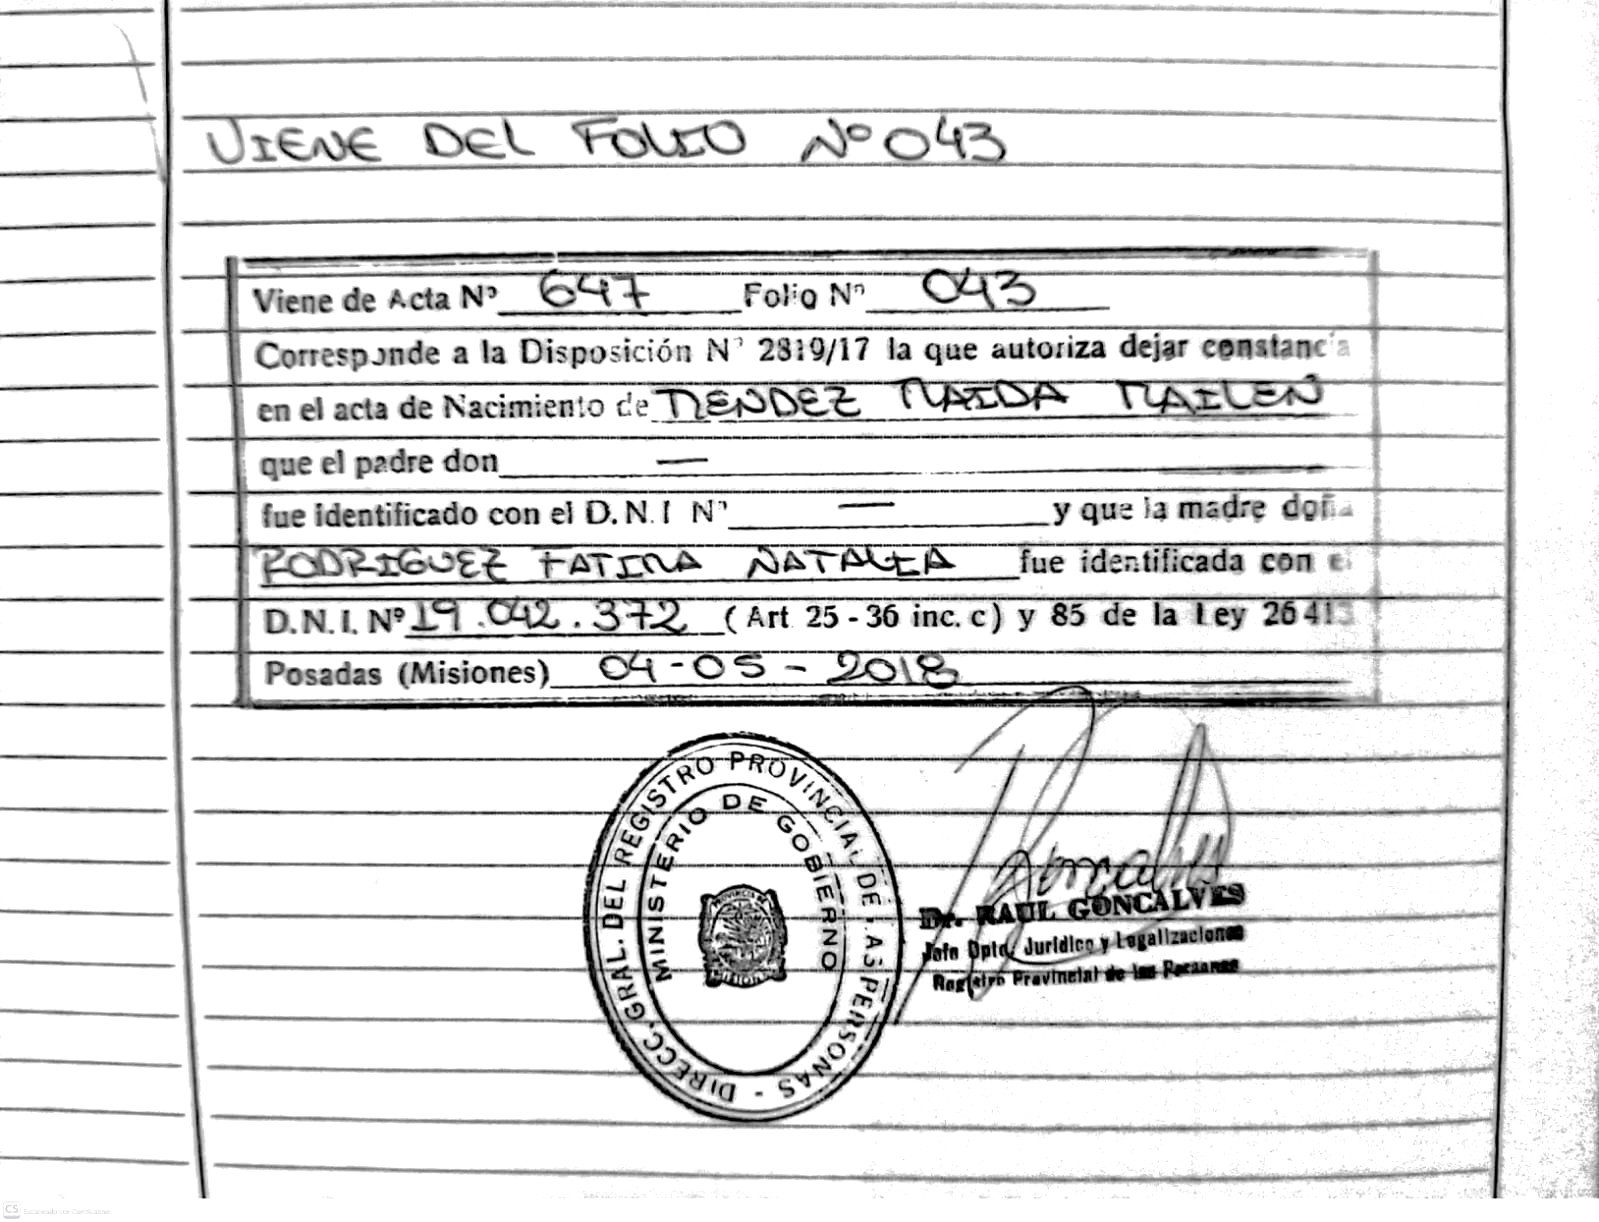 VIENE DEL FOLIO Nº 043
Viene de Acta Nº 647 Folio Nº 043
Corresponde a la Disposición Nº 2819/17 la que autoriza dejar constancia
en el acta de Nacimiento de MENDEZ MAIDA MAILEN
que el padre don —
fue identificado con el D.N.I Nº — y que la madre doña
RODRIGUEZ FATIMA NATALIA fue identificada con el
D.N.I. Nº 19.042.372 (Art 25 - 36 inc. c) y 85 de la Ley 26413
Posadas (Misiones) 04-05-2018
DIRECC. GRAL. DEL REGISTRO PROVINCIAL DE LAS PERSONAS -
MINISTERIO DE GOBIERNO
PROVINCIA
MISIONES
Goncalves
Dr. RAUL GONCALVES
Jefe Dpto. Jurídico y Legalizaciones
Registro Provincial de las Personas
CS Escaneado con CamScanner